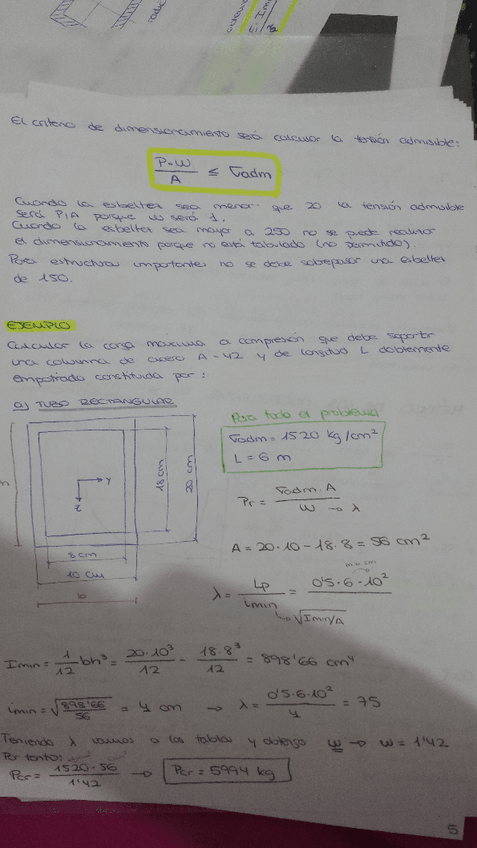 El criterio de dimensionamiento será calcular la tensión admisible:
P·W / A ≤ σadm
Cuando la esbeltez sea menor que 20 la tensión admisible
será P/A porque w será 1.
Cuando la esbeltez sea mayor a 250 no se puede realizar
el dimensionamiento porque no está tabulado (no permitido)
Para estructuras importantes no se debe sobrepasar una esbeltez
de 150.
EJEMPLO
Calcular la carga máxima a compresión que debe soportar
una columna de acero A-42 y de longitud L doblemente
empotrada constituida por:
a) TUBO RECTANGULAR
Para todo el problema
σadm = 1520 kg/cm²
L = 6 m
y
z
18 cm
20 cm
h
8 cm
10 cm
b
Pr = σadm·A / W → λ
A = 20·10 - 18·8 = 56 cm²
m → cm
λ = Lp / imin = 0'5·6·10² /
↳ √Imin/A
Imin = 1/12 bh³ = 20·10³/12 - 18·8³/12 = 898'66 cm⁴
imin = √898'66/56 = 4 cm → λ = 0'5·6·10² / 4 = 75
Teniendo λ vamos a las tablas y obtengo w → w = 1'42
Por tanto:
Pcr = 1520·56 / 1'42 → Pcr = 5994 kg
5